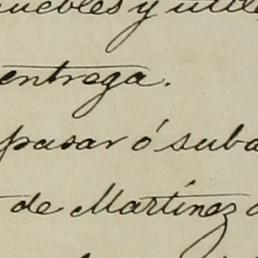 muebles y útile
entrega.
pasar ó suba
de Martinez